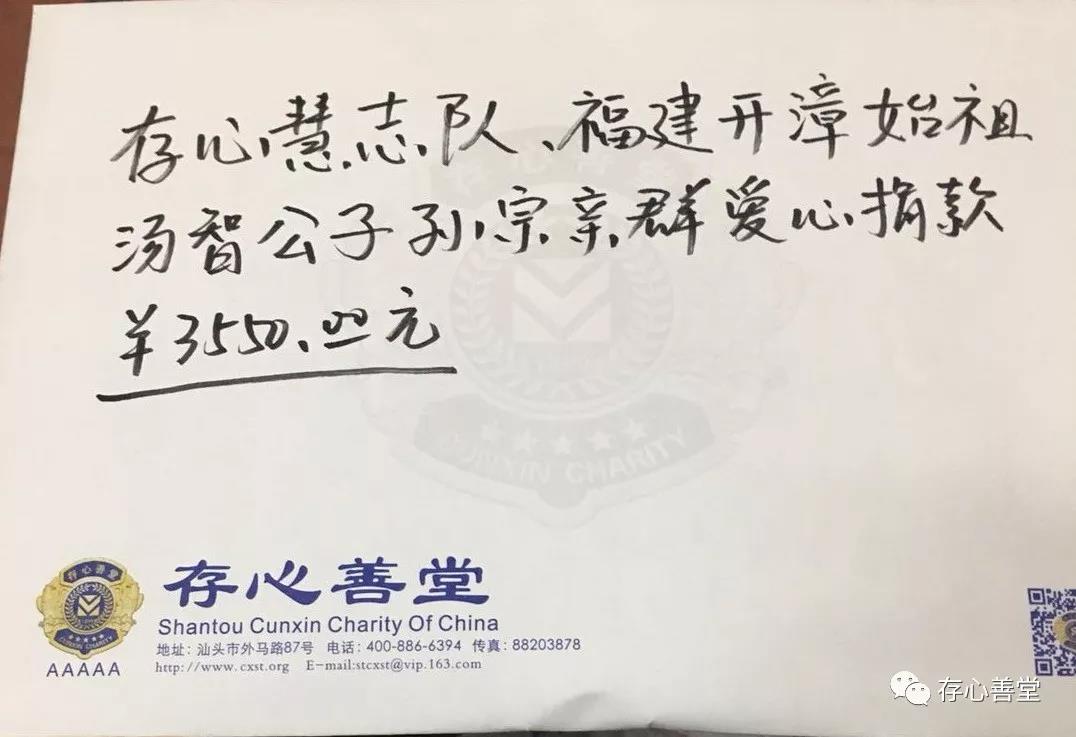 存心慧志队、福建开漳始祖
汤智公子孙宗亲群爱心捐款
¥3550.00元
存心善堂
CUNXIN CHARITY
存心善堂
CUNXIN CHARITY
AAAAA
存心善堂
Shantou Cunxin Charity Of China
地址: 汕头市外马路87号 电话: 400-886-6394 传真: 88203878
http://www.cxst.org E-mail:stcxst@vip.163.com
存心善堂